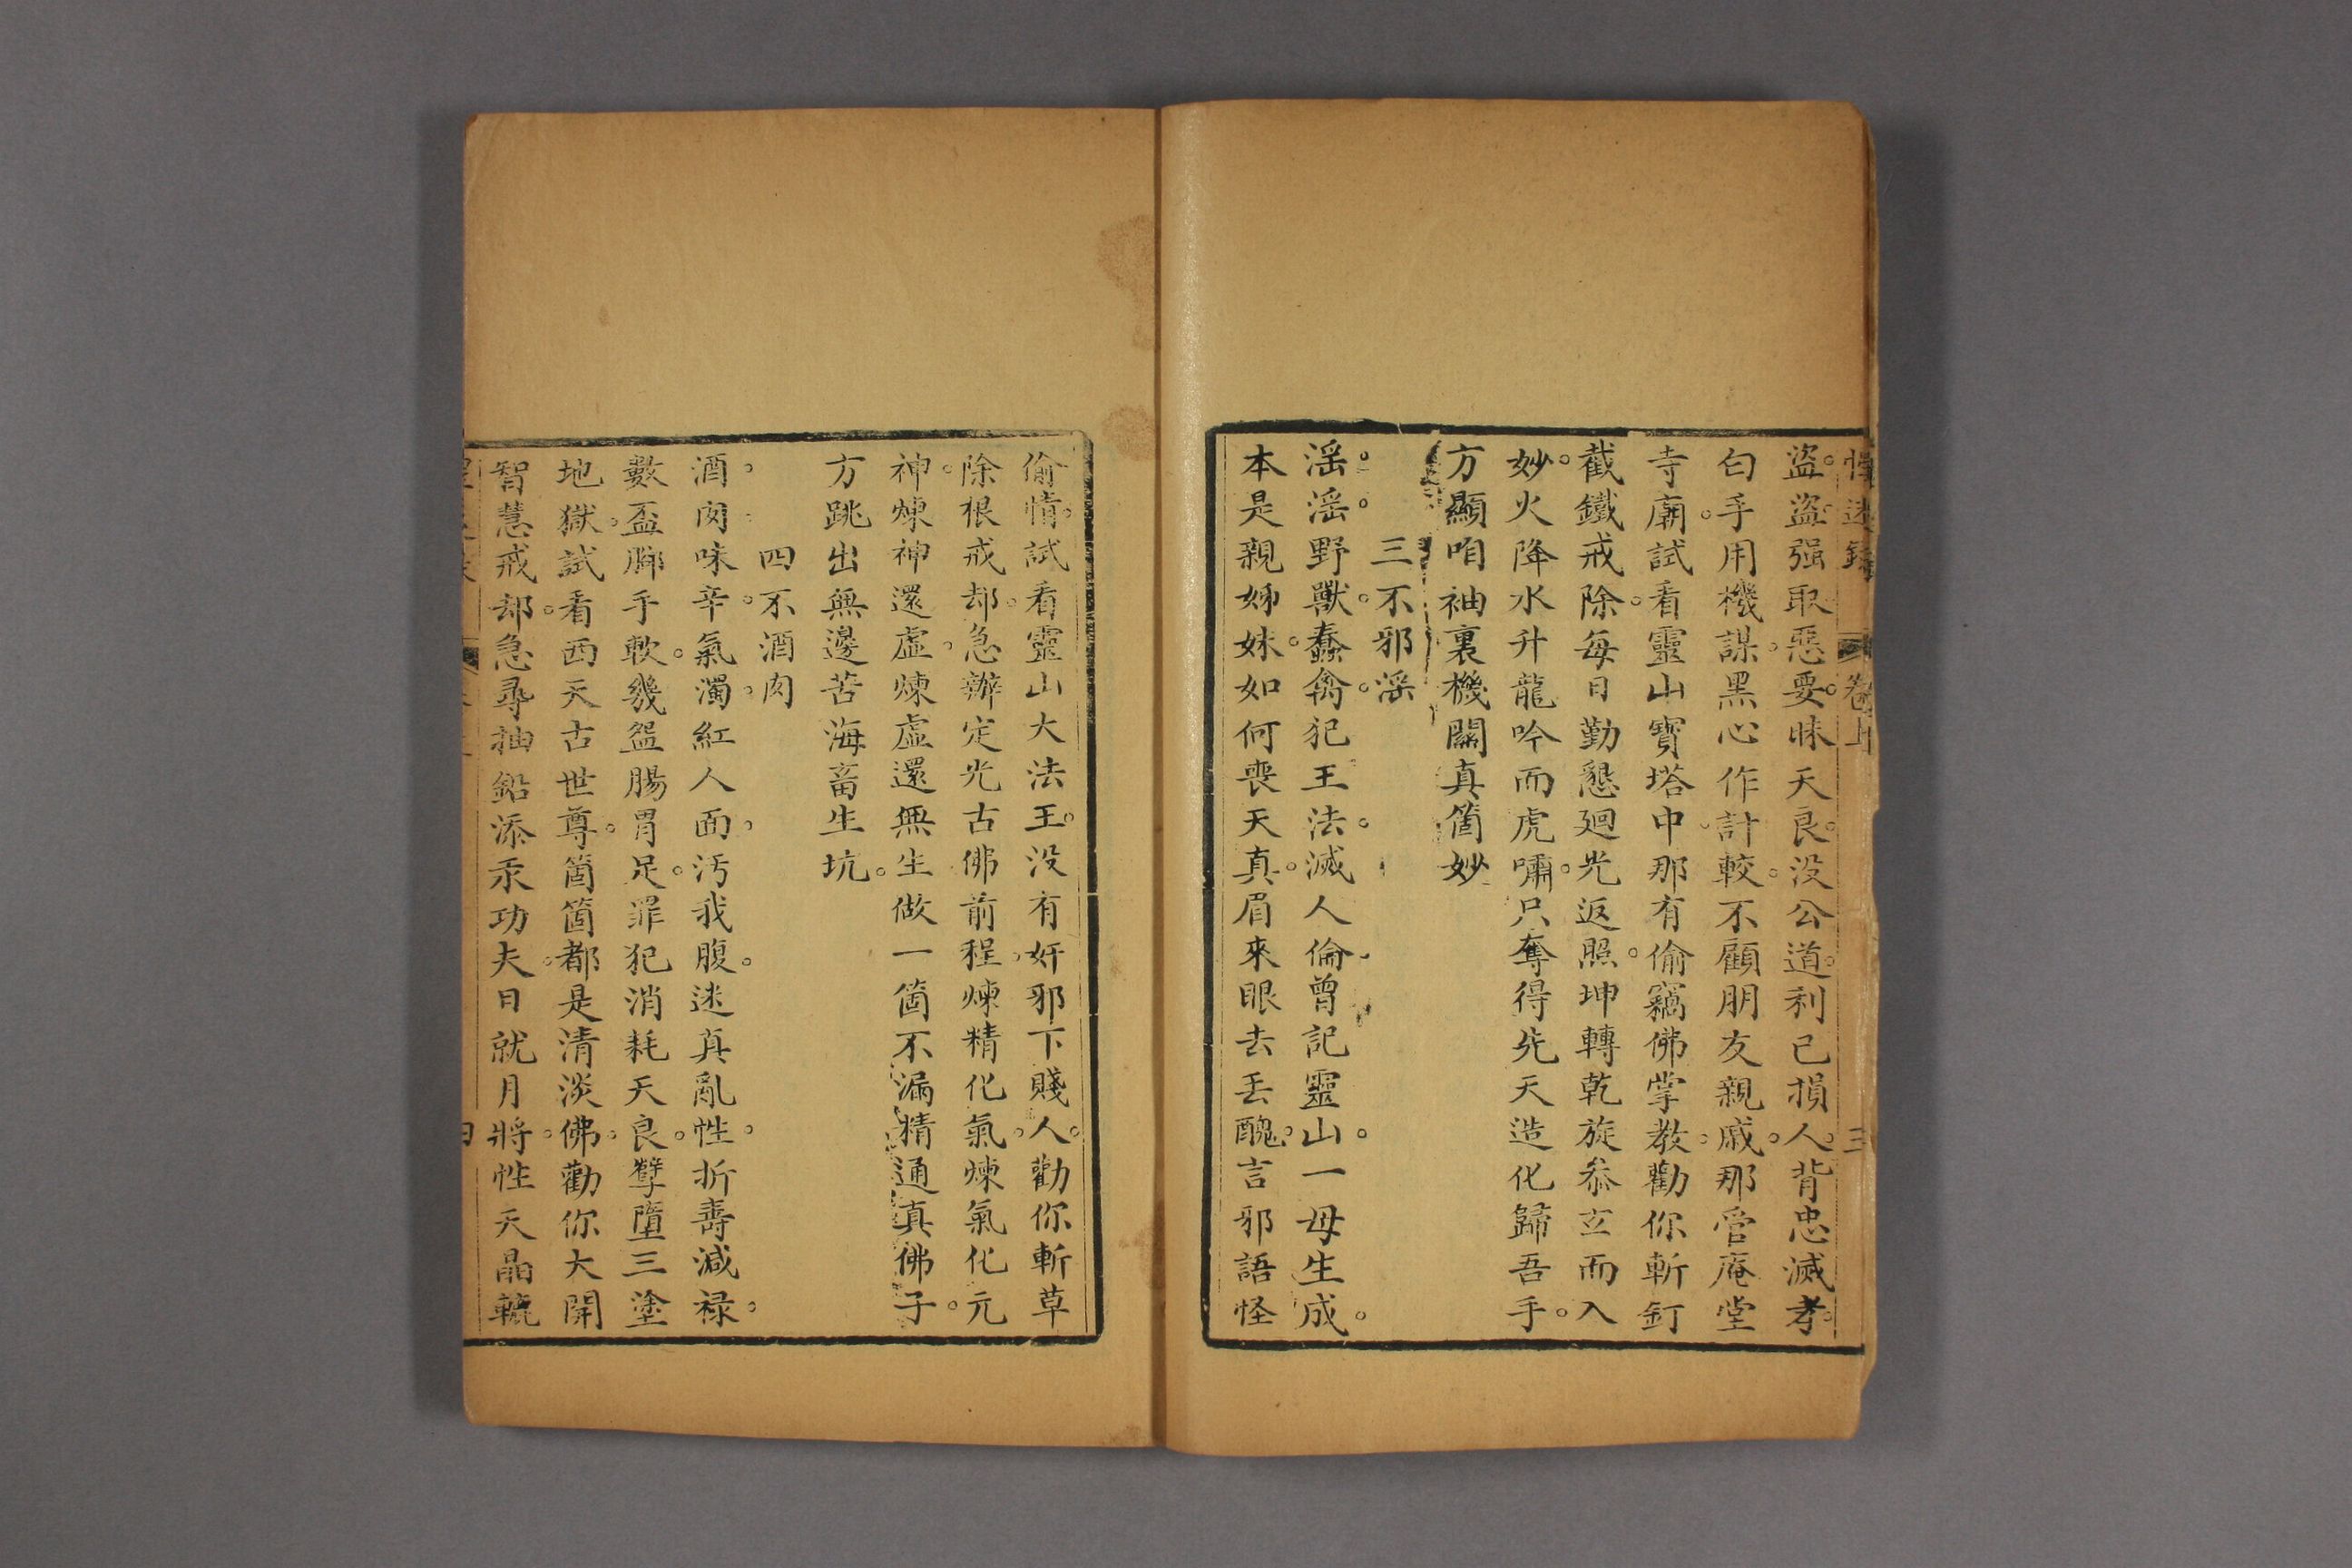 迷錄 卷上 三
盜。盜强取惡要。昧天良。没公道。利己損人。背忠滅孝。
白手用機謀。黑心作計較。不顧朋友親戚。那管庵堂
寺廟。試看靈山寶塔中。那有偷竊佛掌教。勸你斬釘
截鐵戒除。每日勤懇廻光返照。坤轉乾旋叅立而入
妙。火降水升龍吟而虎嘯。只奪得先天造化歸吾手。
方顯咱袖裏機關真箇妙
三不邪淫
淫。淫。野獸。蠢禽。犯王法。滅人倫。曾記靈山。一母生成。
本是親姊妹。如何喪天真。眉來眼去丟醜。言邪語怪
偷情。試看靈山大法王。没有奸邪下賤人。勸你斬草
除根戒却。急辦定光古佛前程。煉精化氣。煉氣化元
神。煉神還虛。煉虛還無生做一箇不漏精通真佛子。
方跳出無邊苦海畜生坑。
四不酒肉
酒。肉。味辛。氣濁。紅人面。汚我腹。迷真亂性。折壽減禄。
數盃脚手軟。幾盌腸胃足。罪犯消耗天良。孽墮三塗
地獄。試看西天古世尊。箇箇都是清淡佛。勸你大開
智慧戒却。急尋抽鉛添汞功夫。日就月將。性天晶